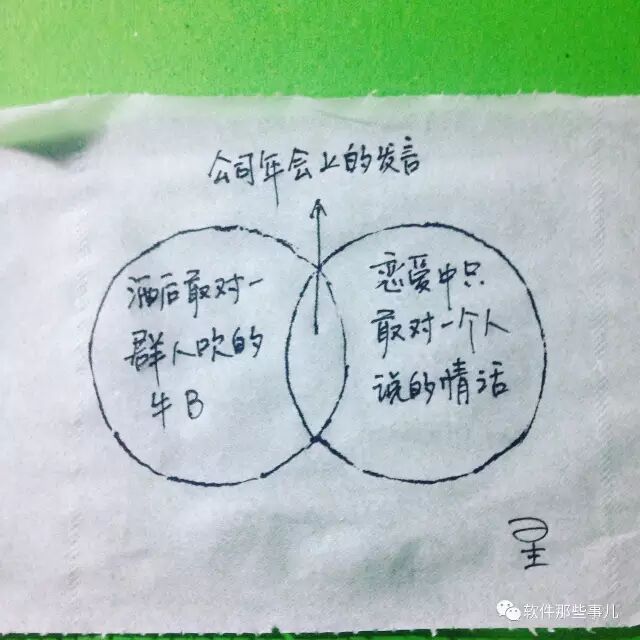 公司年会上的发言
酒后敢对一
群人吹的
牛B
恋爱中只
敢对一个人
说的情话
软件那些事儿